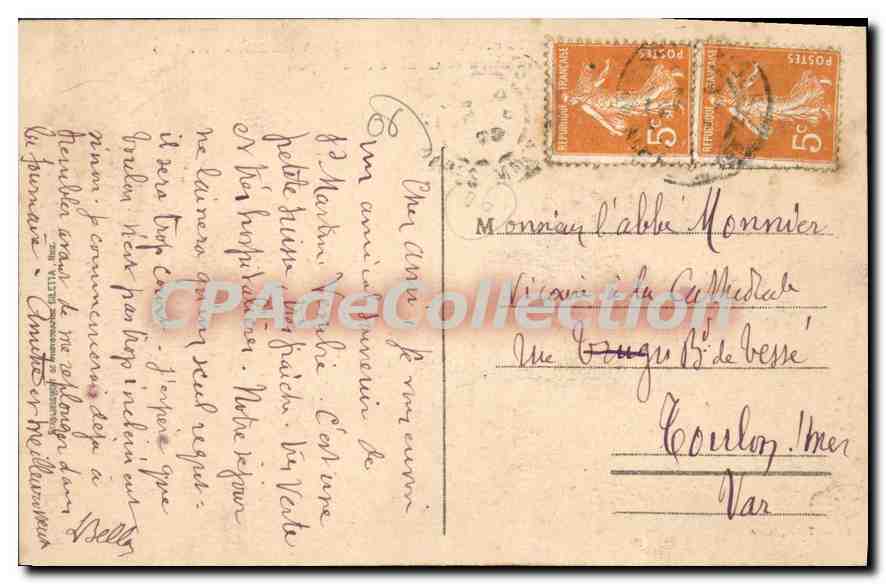 Cher ami, je vous envoi
un amical souvenir de
St Martin Vésubie. C'est une
petite suisse, très fraîche. très verte
et très hospitalière. Notre séjour
ne laissera qu'un seul regret -
il sera trop court. J'espère que
Toulon n'est pas trop incléments
sinon. je commencerai déjà à
trembler avant de me replonger dans
la fournaise. Amitié et meilleurs vœux
Monsieur l'abbé Monnier
Vicaire à la Cathédrale
rue Bd de Tessé
Toulon s/mer
Var
RÉPUBLIQUE FRANÇAISE
POSTES
5c
RÉPUBLIQUE FRANÇAISE
POSTES
5c
CPAdeCollection